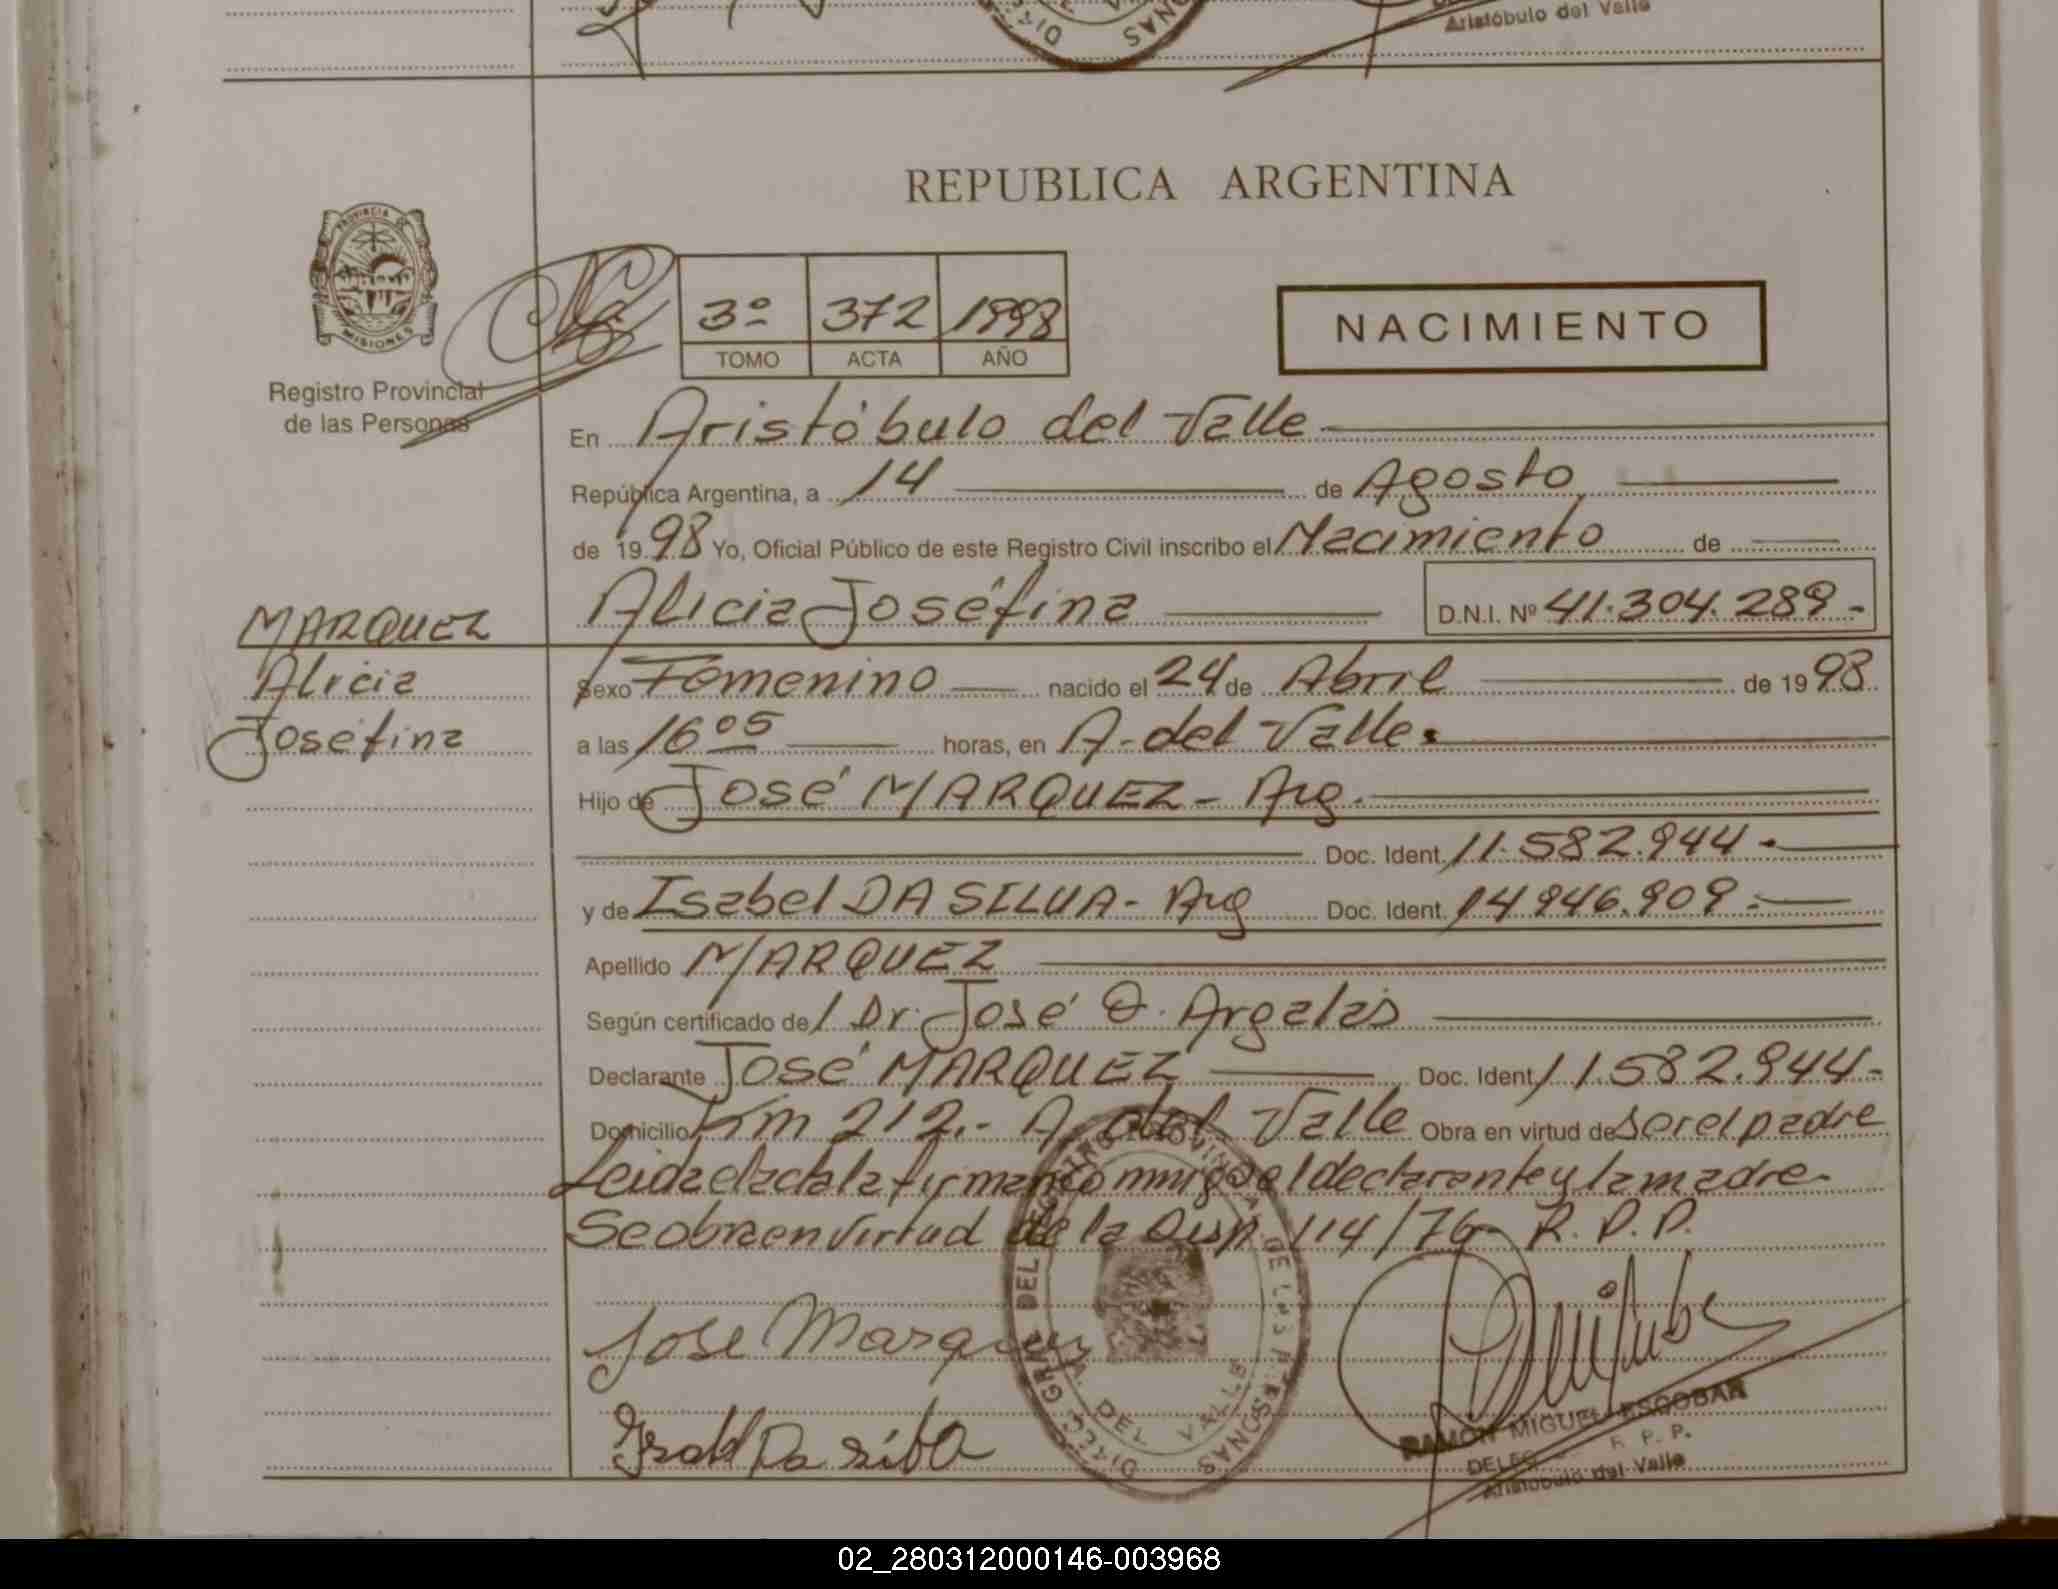 Aristóbulo del Valle
REPUBLICA ARGENTINA
PROVINCIA DE
MISIONES
Registro Provincial
de las Personas
3º 372 1998
TOMO ACTA AÑO
NACIMIENTO
En Aristóbulo del Valle
República Argentina, a 14 de Agosto
de 1998 Yo, Oficial Público de este Registro Civil inscribo el Nacimiento de
Alicia Joséfina D.N.I. Nº 41.304.289.-
MARQUEZ
Alicia
Joséfina
Sexo Femenino nacido el 24 de Abril de 1998
a las 16 05 horas, en A. del Valle.
Hijo de José MARQUEZ - Arg.
Doc. Ident. 11.582.944.-
y de Isabel DA SILVA - Arg Doc. Ident. 14.946.909.-
Apellido MARQUEZ
Según certificado de / Dr. José O. Argalas
Declarante José MARQUEZ Doc. Ident. 11.582.944-
Domicilio Km 212.- A. del Valle Obra en virtud de ser el padre
Leida el acta la firman conmigo el declarante y la madre
Se obra en virtud de la Disp. 114/76 R.P.P.
Jose Marquez
Isabel Da silva
DIREC. GRAL. DEL REGISTRO PROVINCIAL DE LAS PERSONAS
A. DEL VALLE
RAMON MIGUEL ESCOBAR
R. P. P.
Aristóbulo del Valle
02_280312000146-003968